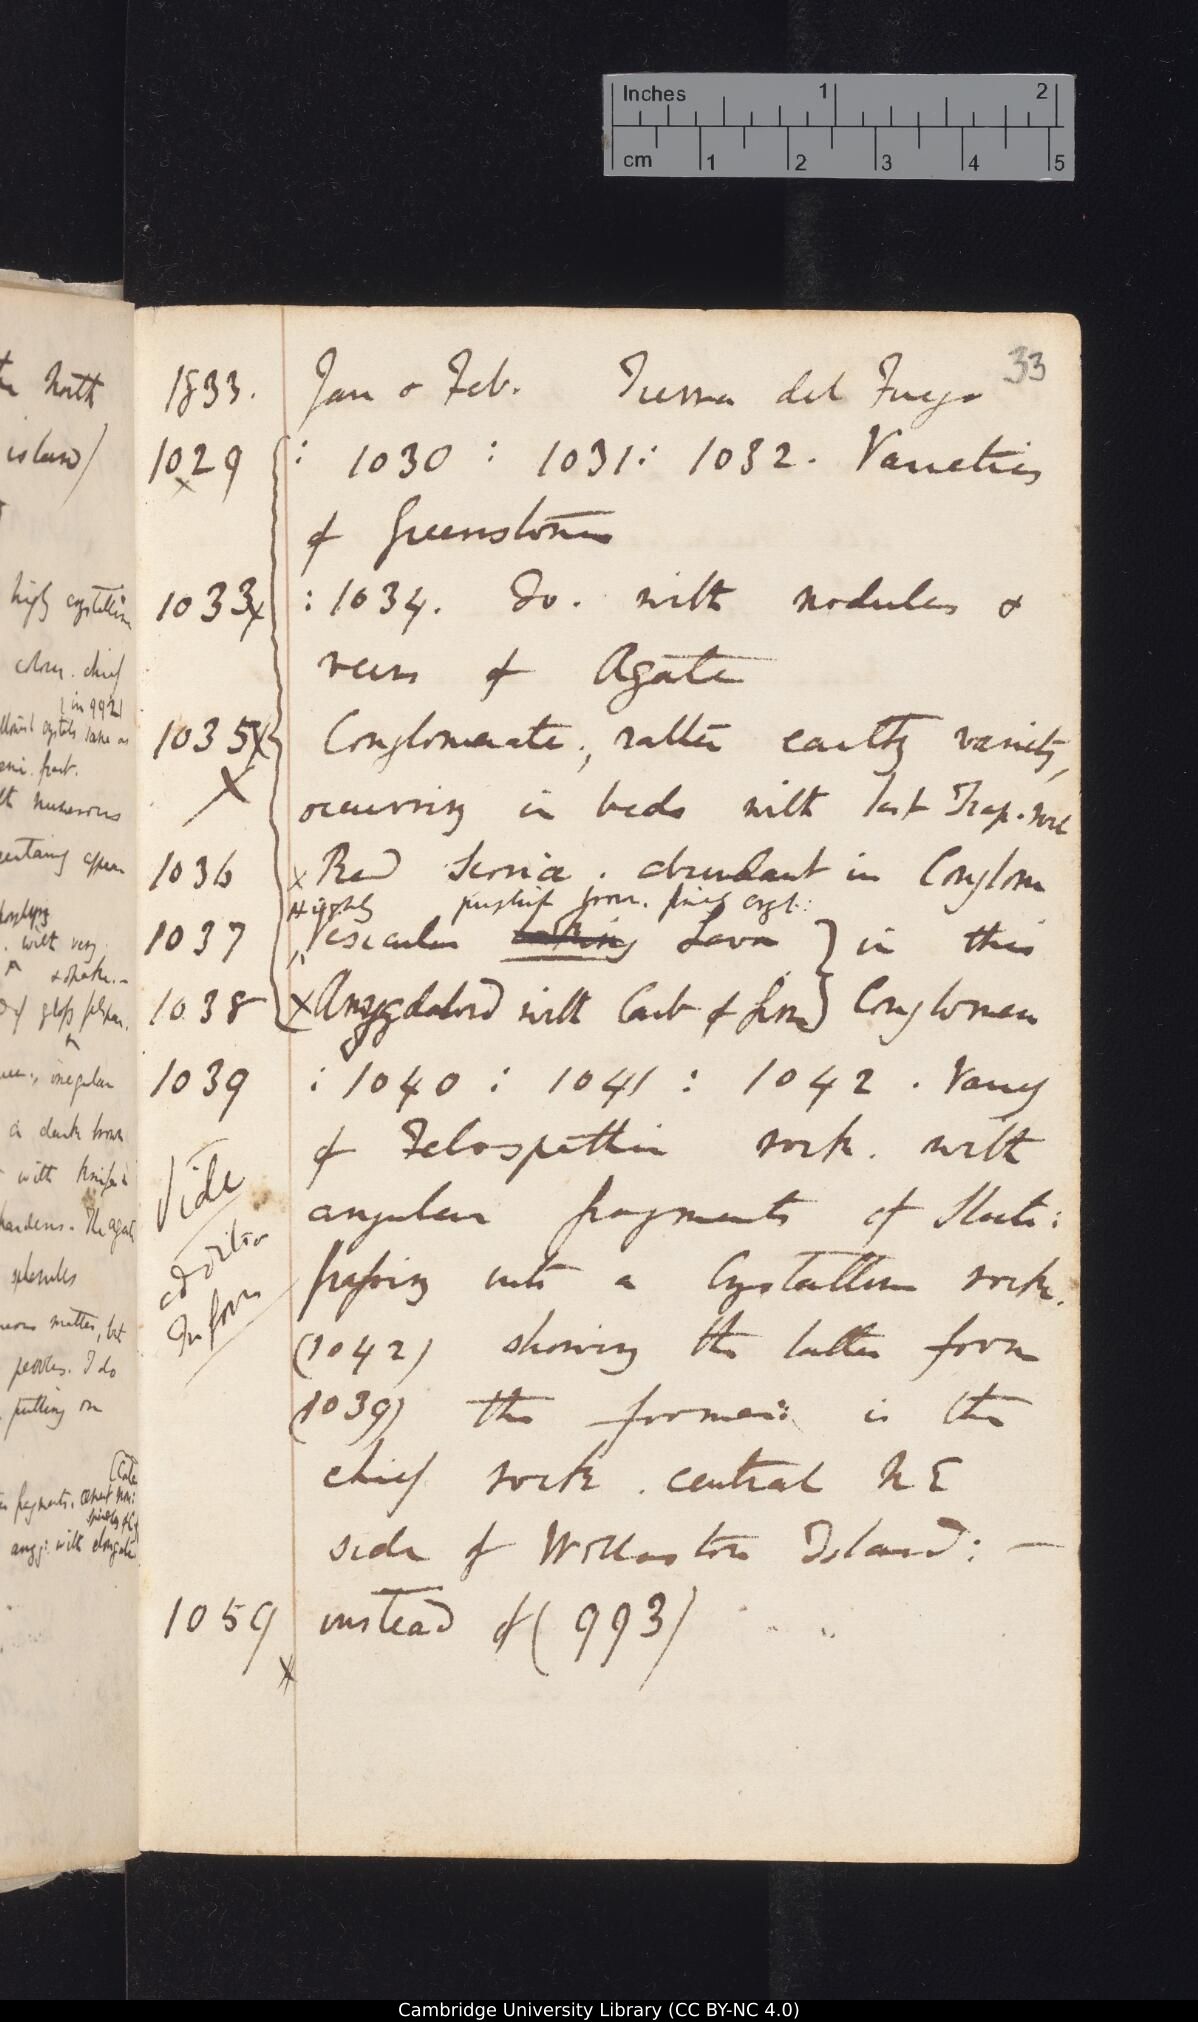 Inches 1 2
cm 1 2 3 4 5
33
1833. Jan & Feb. Tierra del Fuego
1029 : 1030 : 1031: 1032. Varieties
of Greenstones
1033 x : 1034. Do. with nodules &
veins of Agate
1035 X Conglomerate; rather earthy variety,
X occurring in beds with last Trap-rock
1036 x Red Scoria. abundant in Conglom
Highly purplish brown. finely cryst:
1037 Vesicular Lava } in this
1038 x Amygdaloid with Carb of Lime } Conglomera
1039 : 1040 : 1041 : 1042. Variety
of Felospathic rock. with
Vide angular fragments of Slate:
addition passing into a Crystalline rock.
Inform (1042) showing the latter form
(1039) the former: is the
chief rock. central N E
side of Wollaston Island: —
1059 instead of (993)
x
the North
island)
high crystalline
colour. chief
(in 992)
numerous
with very
irregular
a dark brown
with knife
The agate
spherules
matter, but
I do
putting on
fragments.
with elongated
Cambridge University Library (CC BY-NC 4.0)